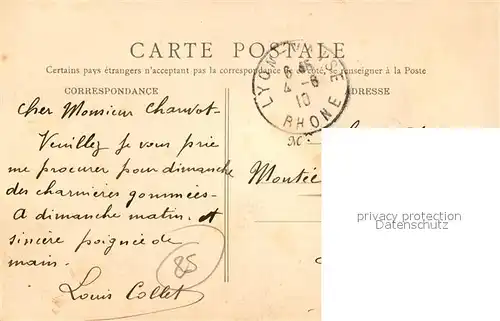 CARTE POSTALE
Certains pays étrangers n'acceptant pas la correspondance se renseigner à la Poste
CORRESPONDANCE
ADRESSE
LYON
6 35
4 - 8
10
RHONE
Cher Monsieur Chanvot-
Veuillez je vous prie
me procurer pour dimanche
des charnières gommées-
A dimanche matin. et
sincère poignée de
main.
Louis Collet
85
Mr
Montée
privacy protection
VeryOldCards.com